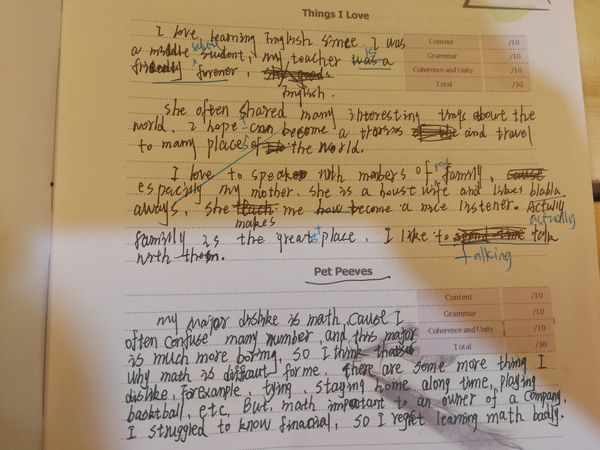 Things I Love
I love learning English since I was
a middle school student, my teacher was a is
friendly forener,
English.
Content /10
Grammar /10
Coherence and Unity /10
Total /30
She often shared many interesting tings about the
world. I hope I can become a and travel
to many places of the world.
I love to speak with mebers of my family, cause
espacilly my mother. She is a house wife and likes blabla
aways. She teach makes me how become a nice listener. Actully actually
familly is the greatest place. I like to spend time talk talking
with them.
Pet Peeves
Content /10
Grammar /10
Coherence and Unity /10
Total /30
my major dislike is math, Cause I
often confuse many number, and this major
is much more boring, so I think
why math is difficult for me. there are some more thing I
dislike, for example, tying, staying home along time, playing
basketball, etc. But math important to an owner of a company.
I struggled to know finacial, so I regret learning math badly.